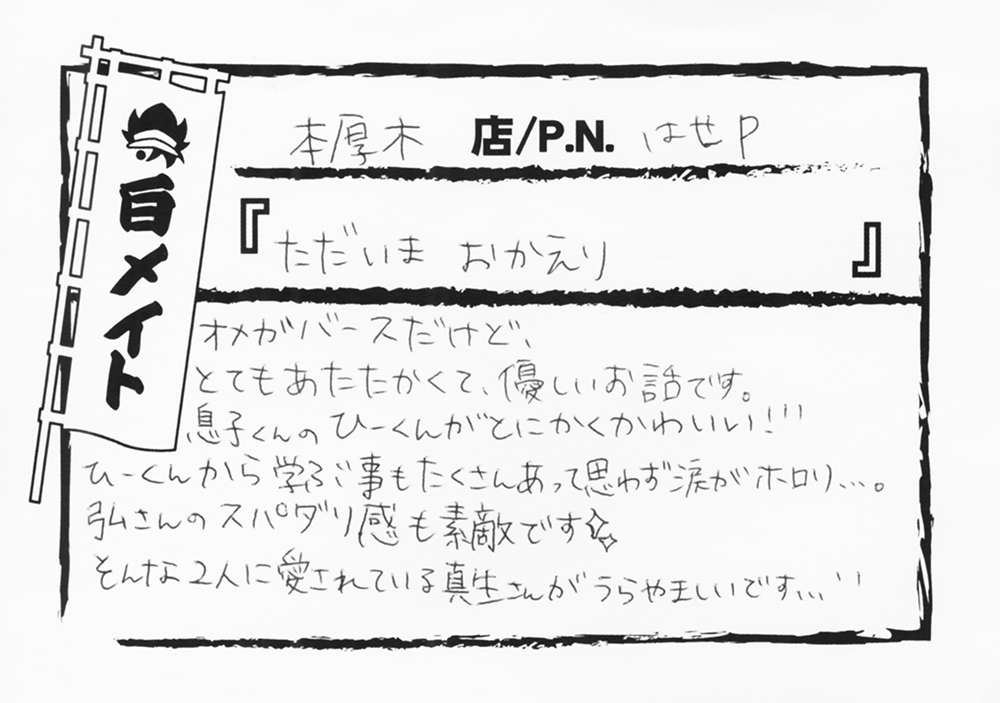 百メイト
本厚木 店/P.N. はせP
『ただいま おかえり』
オメガバースだけど、
とてもあたたかくて、優しいお話です。
息子くんのひーくんがとにかくかわいい!!!
ひーくんから学ぶ事もたくさんあって思わず涙がホロリ...。
弘さんのスパダリ感も素敵です
そんな2人に愛されている真生さんがうらやましいです...